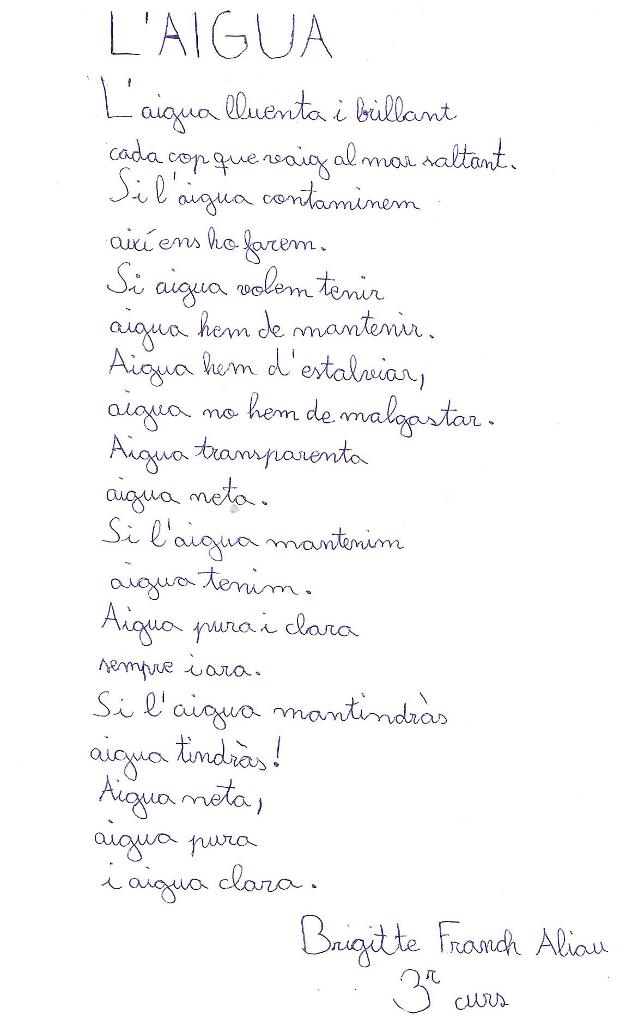 L'AIGUA
L'aigua lluenta i brillant
cada cop que vaig al mar saltant.
Si l'aigua contaminem
així ens ho farem.
Si aigua volem tenir
aigua hem de mantenir.
Aigua hem d'estalviar,
aigua no hem de malgastar.
Aigua transparenta
aigua neta.
Si l'aigua mantenim
aigua tenim.
Aigua pura i clara
sempre i ara.
Si l'aigua mantindràs
aigua tindràs!
Aigua neta,
aigua pura
i aigua clara.
Brigitte Franch Aliau
3r curs